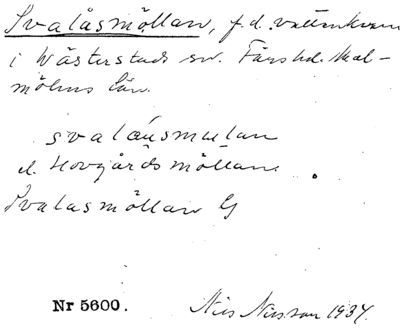 Svalåsmöllan, f.d. vattenkvarn
i Wästerstads sn. Färs hd. Mal-
möhus län.
svalaúsmulan
el. Hovgårdsmöllan.
Svalasmöllan G
Nr 5600.
Nils Nilsson 1937.